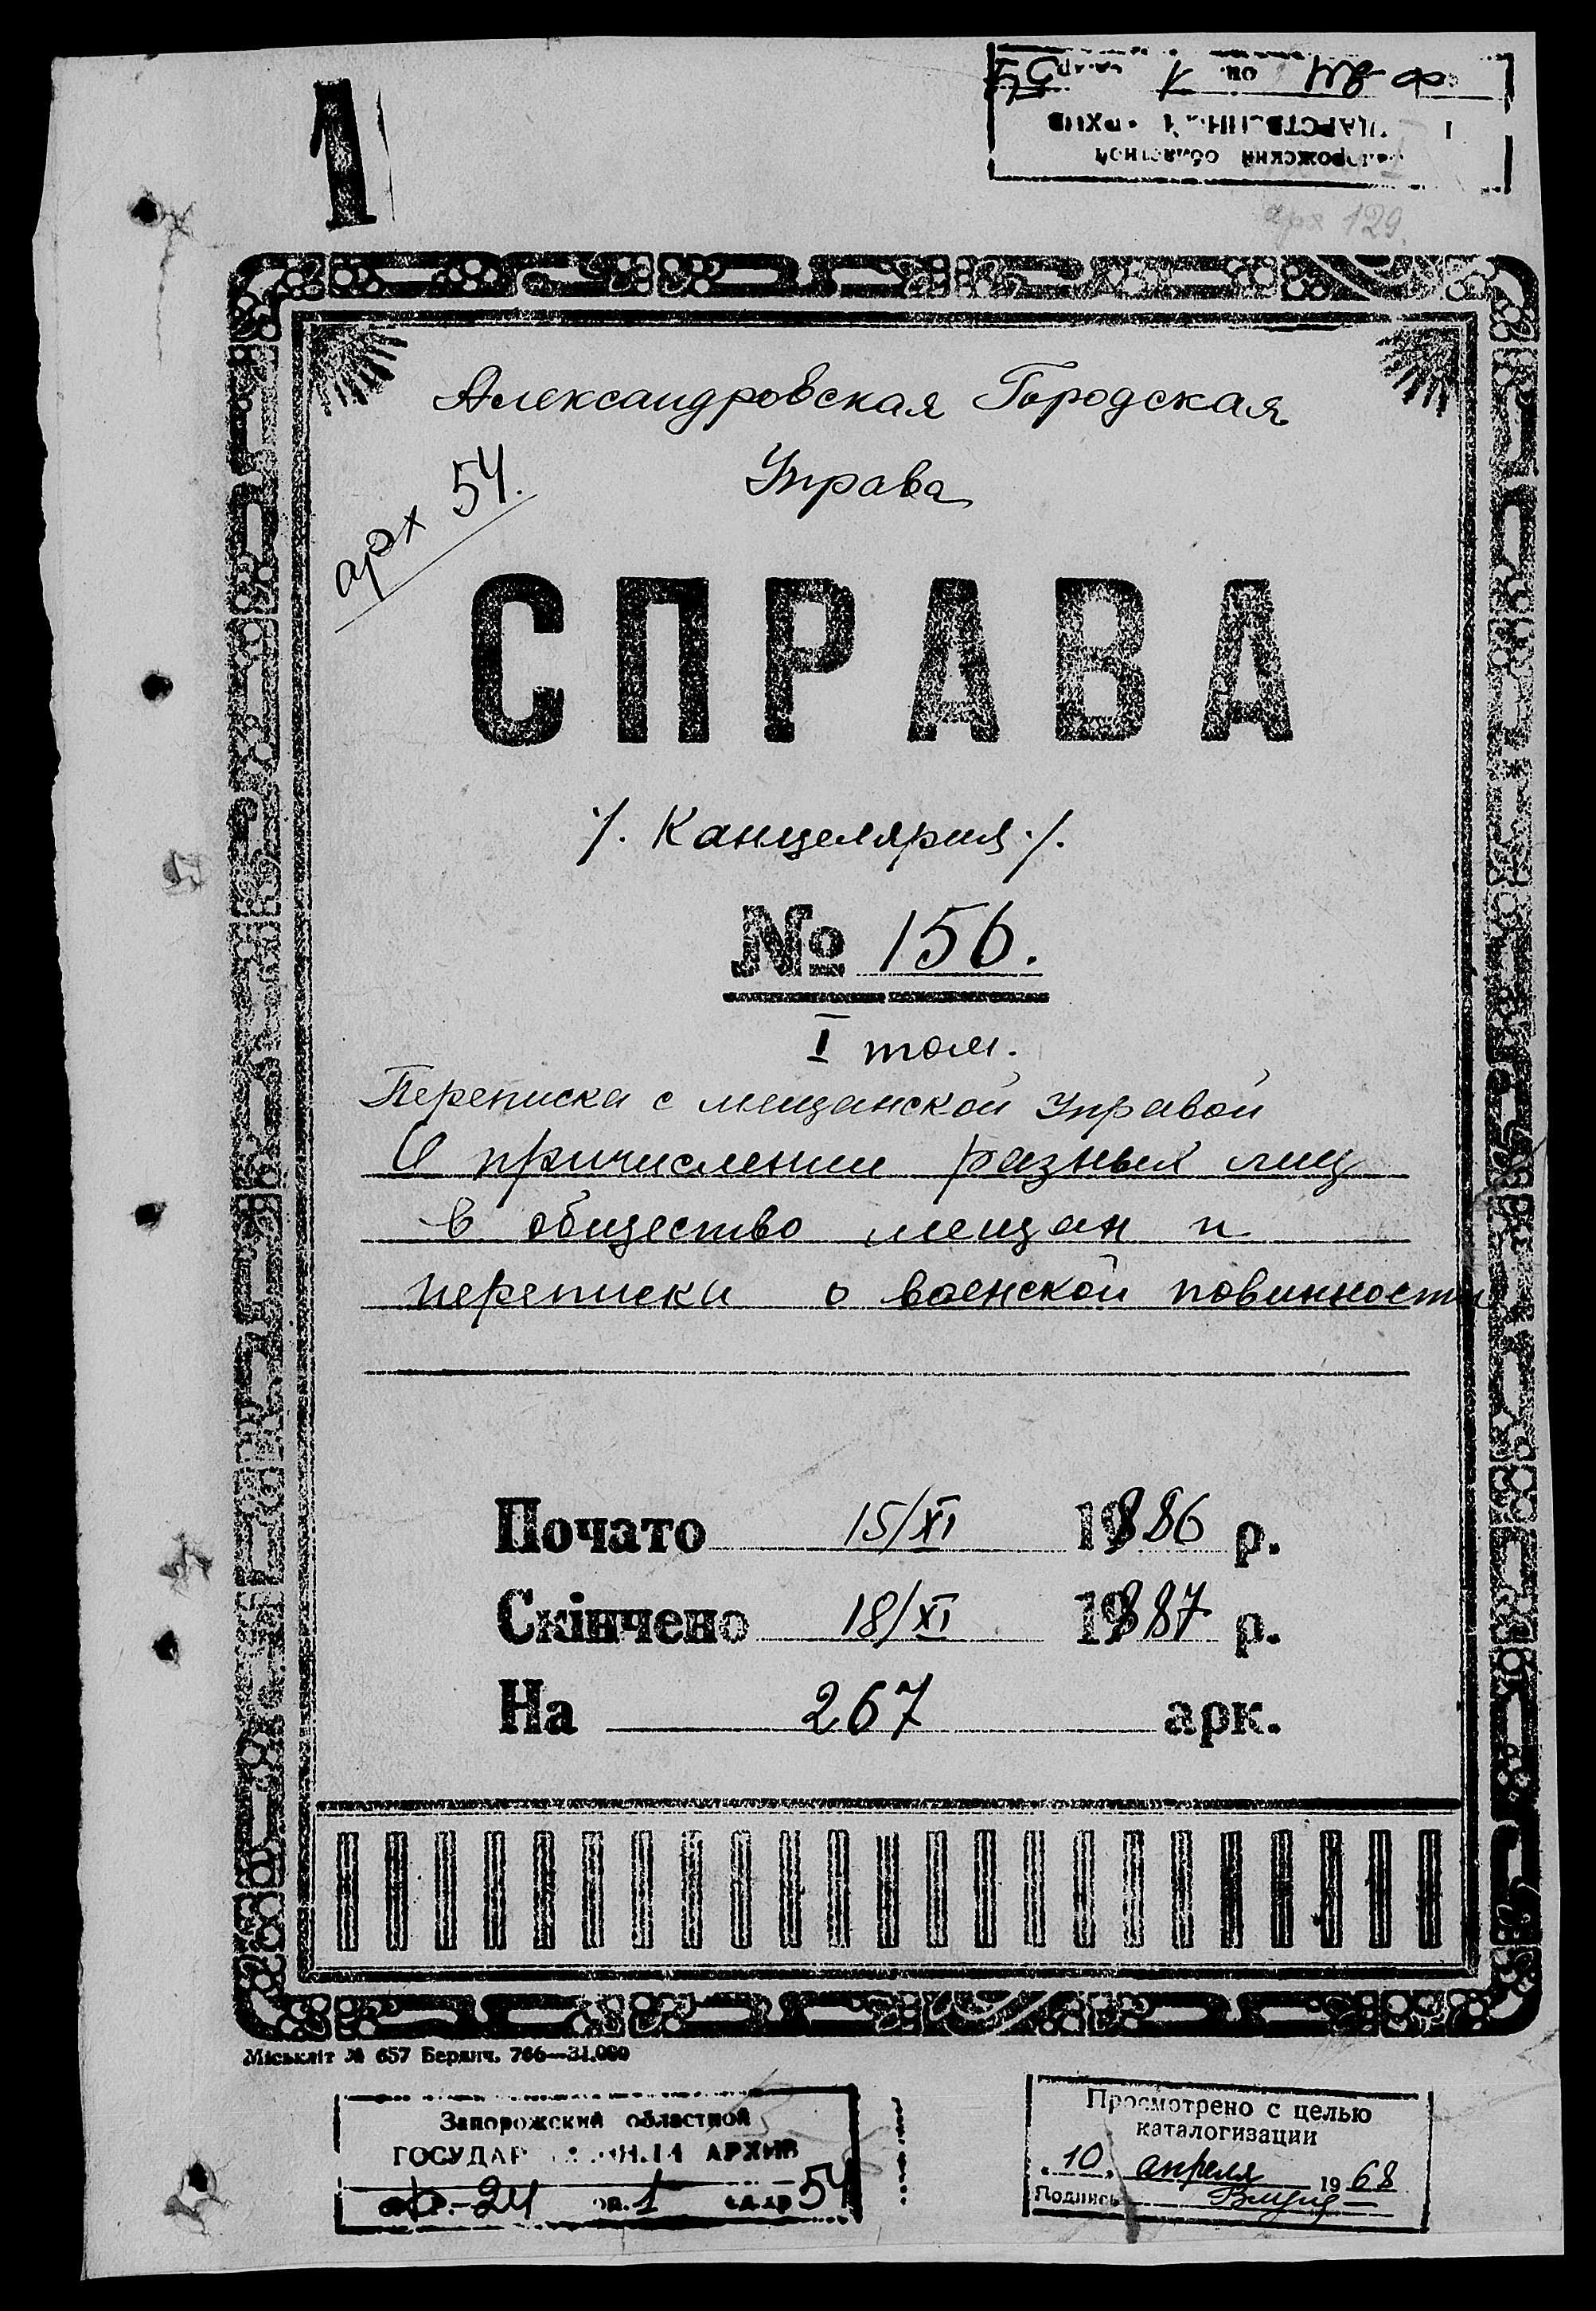 1
Ф-24 оп. 1 ед.хр 54
арх 129.
Александровская Городская
Управа
арх 54.
СПРАВА
/. Канцелярия ./.
№ 156.
I том.
Переписка с мещанской Управой
О причислении разных лиц
в общество мещан и
переписки о военской повинности
Почато 15/XI 1886 р.
Скінчено 18/XI 1887 р.
На 267 арк.
Міськліт № 657 Бердич. 766—31.000
Запорожский областной
АРХИВ
ф.-24 оп. 1 ед.хр 54
Просмотрено с целью
каталогизации
10 апреля 1968
Подпись